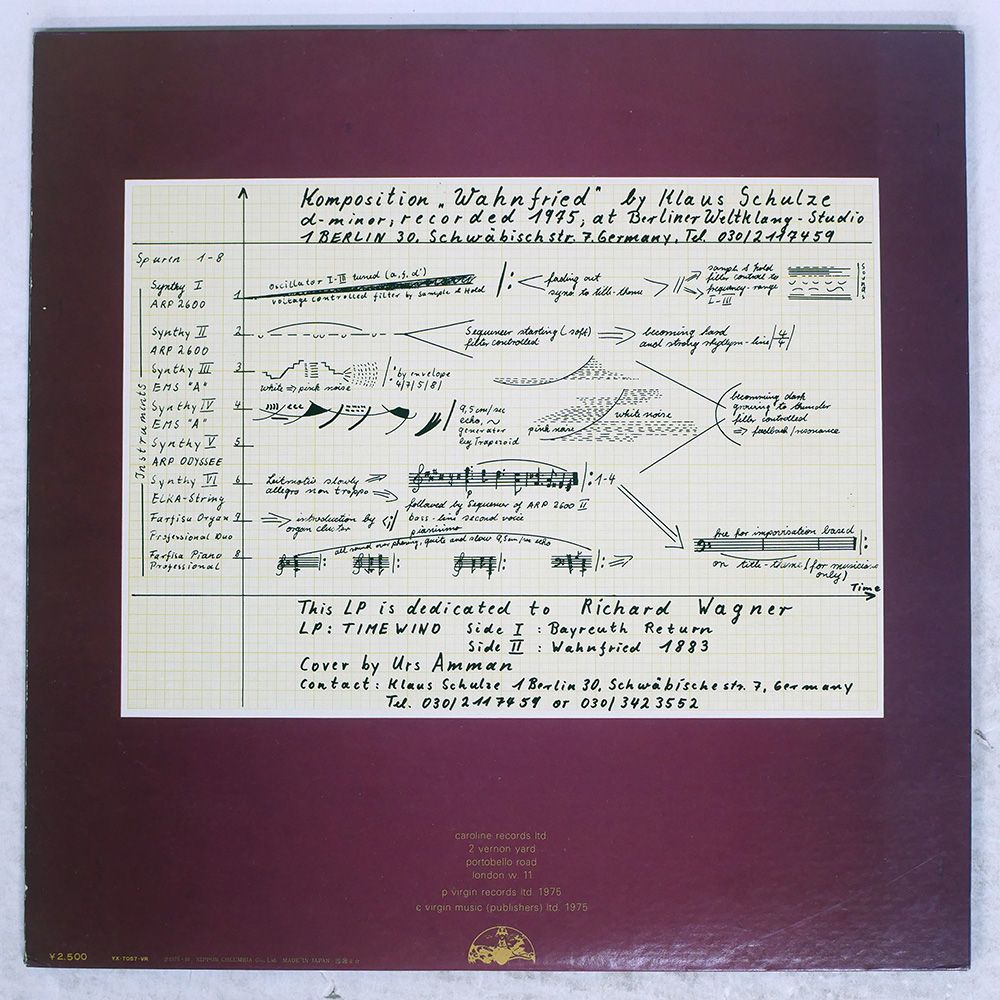 Komposition „Wahnfried" by Klaus Schulze
d-minor, recorded 1975, at Berliner Weltklang-Studio
1 BERLIN 30. Schwäbischstr. 7. Germany, Tel. 030/2117459
Spuren 1-8
Instruments
Synthy I
ARP 2600
1
Oscillator I-III tuned (a, f, d')
voltage controlled filter by Sample & Hold
fading out
sync to title-theme
sample & hold
filter control to
frequency-range
I-III
Synthy II
ARP 2600
2
Sequencer starting (soft)
filter controlled
becoming hard
and strong rhythm-line
4/4
Synthy III
EMS "A"
3
white => pink noise
by envelope
4/7/5/8/
Synthy IV
EMS "A"
4
9,5 cm/sec
echo, ~
generator
by Trapezoid
white noise
pink noise
becomming dark
growing to thunder
filter controlled
=> feedback/resonance
Synthy V
ARP ODYSSEE
5
Synthy VI
ELKA-String
6
Leitmotiv slowly
allegro non troppo
p
1-4
followed by Sequencer of ARP 2600 II
bass-line second voice
pianissimo
Farfisa Organ
Professional Duo
7
introduction by
organ cluster
Farfisa Piano
Professional
8
all sound over phasing, quite and slow 9,5 cm/sec echo
free for improvisation based
on title-theme (for musicians
only)
Time
This LP is dedicated to Richard Wagner
LP: TIMEWIND Side I : Bayreuth Return
Side II : Wahnfried 1883
Cover by Urs Amman
Contact: Klaus Schulze 1 Berlin 30, Schwäbischestr. 7, Germany
Tel. 030/2117459 or 030/3423552
caroline records ltd.
2 vernon yard
portobello road
london w. 11.
p virgin records ltd. 1975
c virgin music (publishers) ltd. 1975
¥2,500 YX-7057-VR NIPPON COLUMBIA Co., Ltd. MADE IN JAPAN